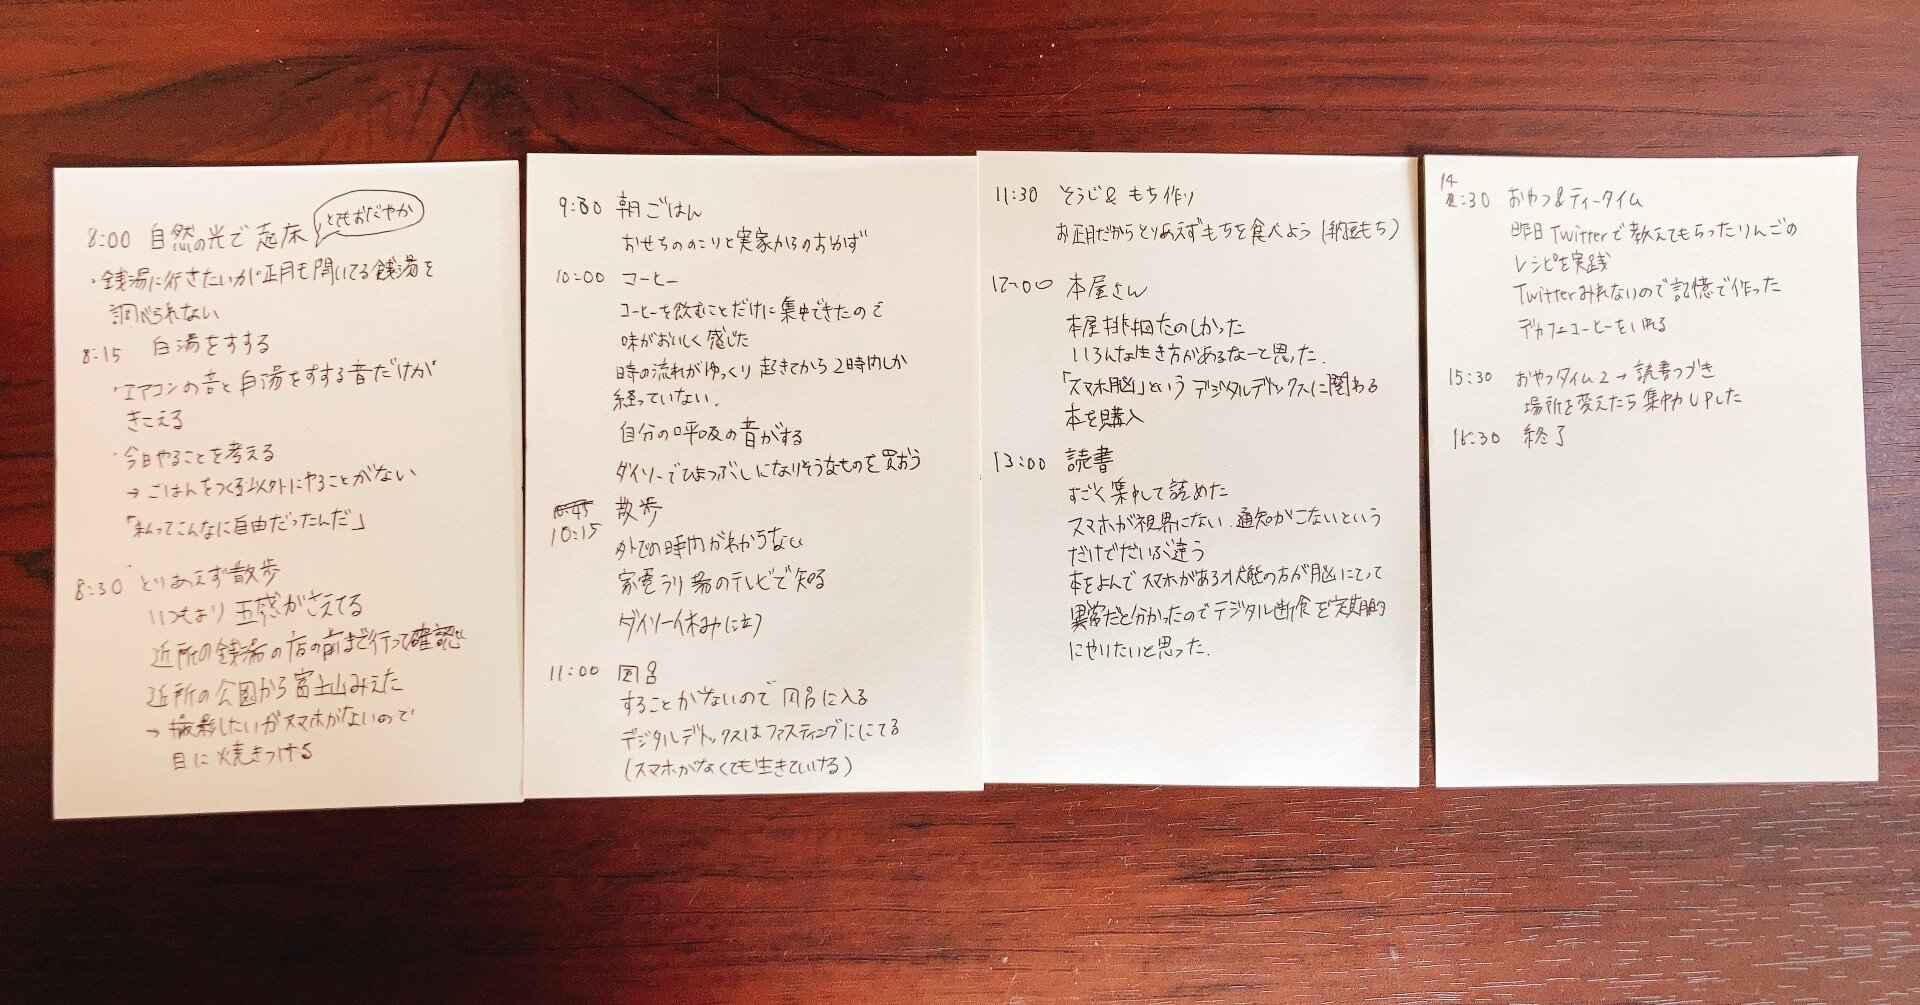 8:00 自然の光で起床 とてもおだやか
・銭湯に行きたいが正月も開いてる銭湯を
調べられない
8:15 白湯をすする
・エアコンの音と白湯をすする音だけが
きこえる
・今日やることを考える
→ ごはんをつくる以外にやることがない
「私ってこんなに自由だったんだ」
8:30 とりあえず散歩
いつもより五感がさえてる
近所の銭湯の店の前まで行って確認
近所の公園から富士山みえた
→ 撮影したいがスマホがないので
目に焼きつける
9:00 朝ごはん
おせちののこりと実家からのおかず
10:00 コーヒー
コーヒーを飲むことだけに集中できたので
味がおいしく感じた
時の流れがゆっくり 起きてから2時間しか
経っていない.
自分の呼吸の音がする
ダイソーでひまつぶしになりそうなものを買おう
10:45
10:15 散歩
外での時間がわからない
家電うり場のテレビで知る
ダイソー休みに立つ
11:00 風呂
することがないので風呂に入る
デジタルデトックスはファスティングににてる
(スマホがなくても生きていける)
11:30 そうじ & もち作り
お正月だからとりあえずもちを食べよう(納豆もち)
12:00 本屋さん
本屋徘徊たのしかった
いろんな生き方があるなーと思った.
「スマホ脳」というデジタルデトックスに関わる
本を購入
13:00 読書
すごく集中して読めた
スマホが視界にない、通知がこないという
だけでだいぶ違う
本をよんでスマホがある状態の方が脳にとって
異常だと分かったのでデジタル断食を定期的
にやりたいと思った.
14:30 おやつ&ティータイム
昨日Twitterで教えてもらったりんごの
レシピを実践
Twitterみれないので記憶で作った
デカフェコーヒーをいれる
15:30 おやつタイム2→読書つづき
場所を変えたら集中力UPした
16:30 終了